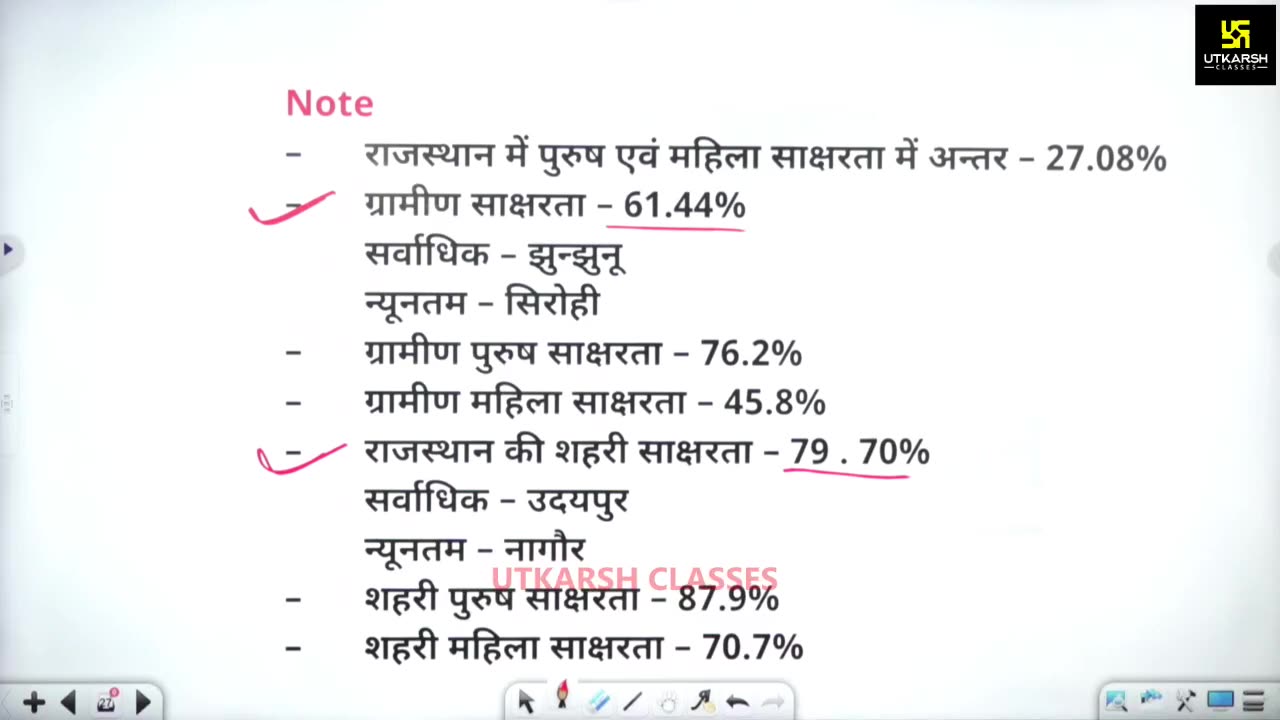 UTKARSH
CLASSES
Note
– राजस्थान में पुरुष एवं महिला साक्षरता में अन्तर – 27.08%
– ग्रामीण साक्षरता – 61.44%
सर्वाधिक – झुन्झुनू
न्यूनतम – सिरोही
– ग्रामीण पुरुष साक्षरता – 76.2%
– ग्रामीण महिला साक्षरता – 45.8%
– राजस्थान की शहरी साक्षरता – 79 . 70%
सर्वाधिक – उदयपुर
न्यूनतम – नागौर
UTKARSH CLASSES
– शहरी पुरुष साक्षरता – 87.9%
– शहरी महिला साक्षरता – 70.7%
27